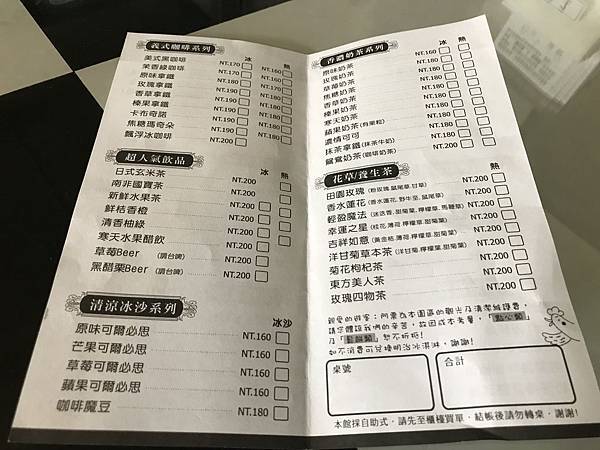 義式咖啡系列 冰 熱
美式黑咖啡 NT.170 NT.160
茉香綠咖啡 NT.170
原味拿鐵 NT.190
玫瑰拿鐵 NT.190
香草拿鐵 NT.190
榛果拿鐵 NT.190
卡布奇諾 NT.190
焦糖瑪奇朵 NT.190
飄浮冰咖啡 NT.200
超人氣飲品 冰 熱
日式玄米茶 NT.200
南非國寶茶 NT.200
新鮮水果茶 NT.200
鮮桔香橙 NT.200
清香柚綠 NT.200
寒天水果醋飲 NT.200
草莓Beer (調台啤) NT.200
黑醋栗Beer (調台啤) NT.200
清涼冰沙系列 冰沙
原味可爾必思 NT.160
芒果可爾必思 NT.160
草莓可爾必思 NT.160
蘋果可爾必思 NT.160
咖啡魔豆 NT.180
香濃奶茶系列 冰 熱
原味奶茶 NT.160
玫瑰奶茶 NT.180
草莓奶茶 NT.180
焦糖奶茶 NT.180
香草奶茶 NT.180
榛果奶茶 NT.180
寒天奶茶 NT.180
蘋果奶茶(有果粒) NT.180
濃情可可 NT.180
抹茶拿鐵(抹茶牛奶) NT.180
鴛鴦奶茶(咖啡奶茶) NT.180
花草/養生茶 熱
田園玫瑰 (粉玫瑰,鼠尾草,甘草) NT.200
香水蓮花 (香水蓮花,野牛至,鼠尾草) NT.200
輕盈魔法 (迷迭香,甜菊葉,檸檬草,馬鞭草) NT.200
幸運之星 (桂花,薄荷,檸檬草,甜菊葉) NT.200
吉祥如意 (黃金桔,薄荷,檸檬草,甜菊葉) NT.200
洋甘菊草本茶 (洋甘菊,檸檬草,甜菊葉) NT.200
菊花枸杞茶 NT.200
東方美人茶 NT.200
玫瑰四物茶 NT.200
親愛的遊客：門票為本園區的觀光及清潔維護費,
請您體諒我們的辛苦，故因成本考量，「點心類」
及「鬆餅類」暫不折抵!
如不消費可兌換明治冰淇淋，謝謝!
桌號
合計
本館採自助式，請先至櫃檯買單，結帳後請勿轉桌，謝謝!